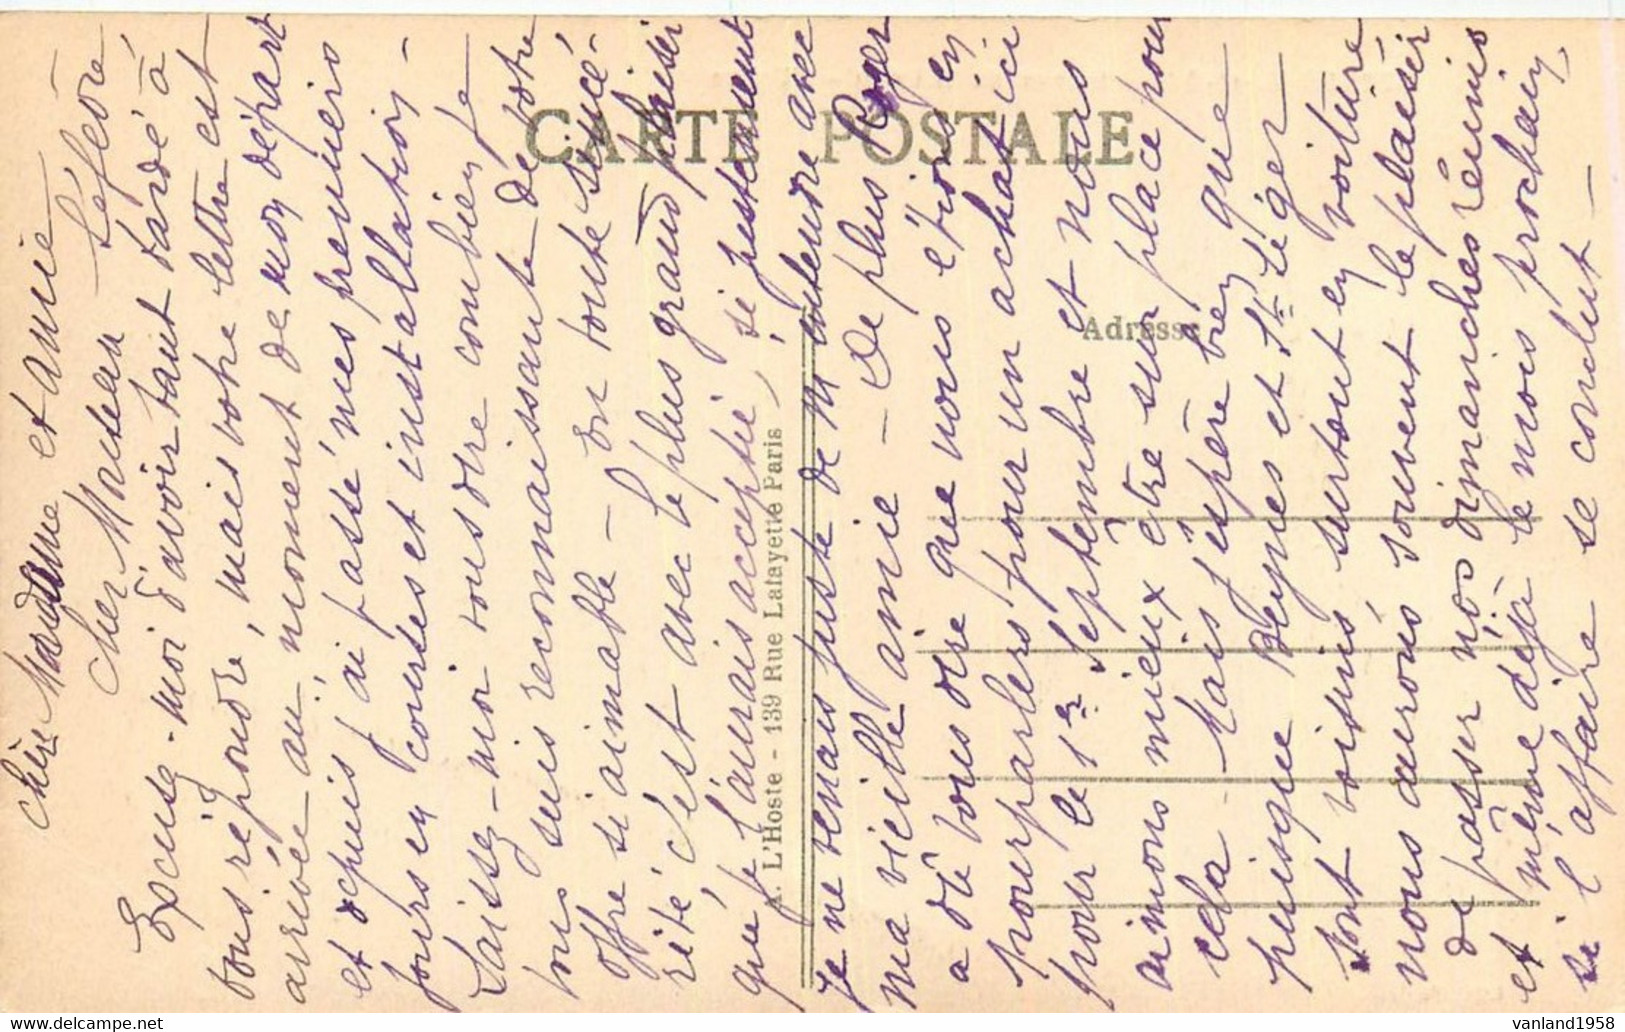 Chère Madame et amie
Cher Monsieur Lefevre
Excusez-moi d'avoir tant tardé à
vous répondre, mais votre lettre est
arrivée au moment de mon départ
et depuis j'ai passé mes premiers
jours en courses et installation -
Laissez-moi vous dire combien je
vous suis reconnaissante de votre
offre si aimable - En toute sincé-
rité, c'est avec le plus grand plaisir
que je l'aurais accepté, si justement
je ne venais juste de m'entendre avec
ma vieille amie - De plus Roger
a dû vous dire que nous étions en
pourparlers pour un achat ici
pour le 1er Septembre et nous
aimons mieux être sur place pour
cela - Mais j'espère bien que
puisque Beynes et St Léger
sont voisins, surtout en voiture
nous aurons souvent le plaisir
de passer nos dimanches réunis
et même déjà le mois prochain,
si l'affaire se conclut -
CARTE POSTALE
Adresse
A. L'Hoste - 139 Rue Lafayette Paris
vanland1958